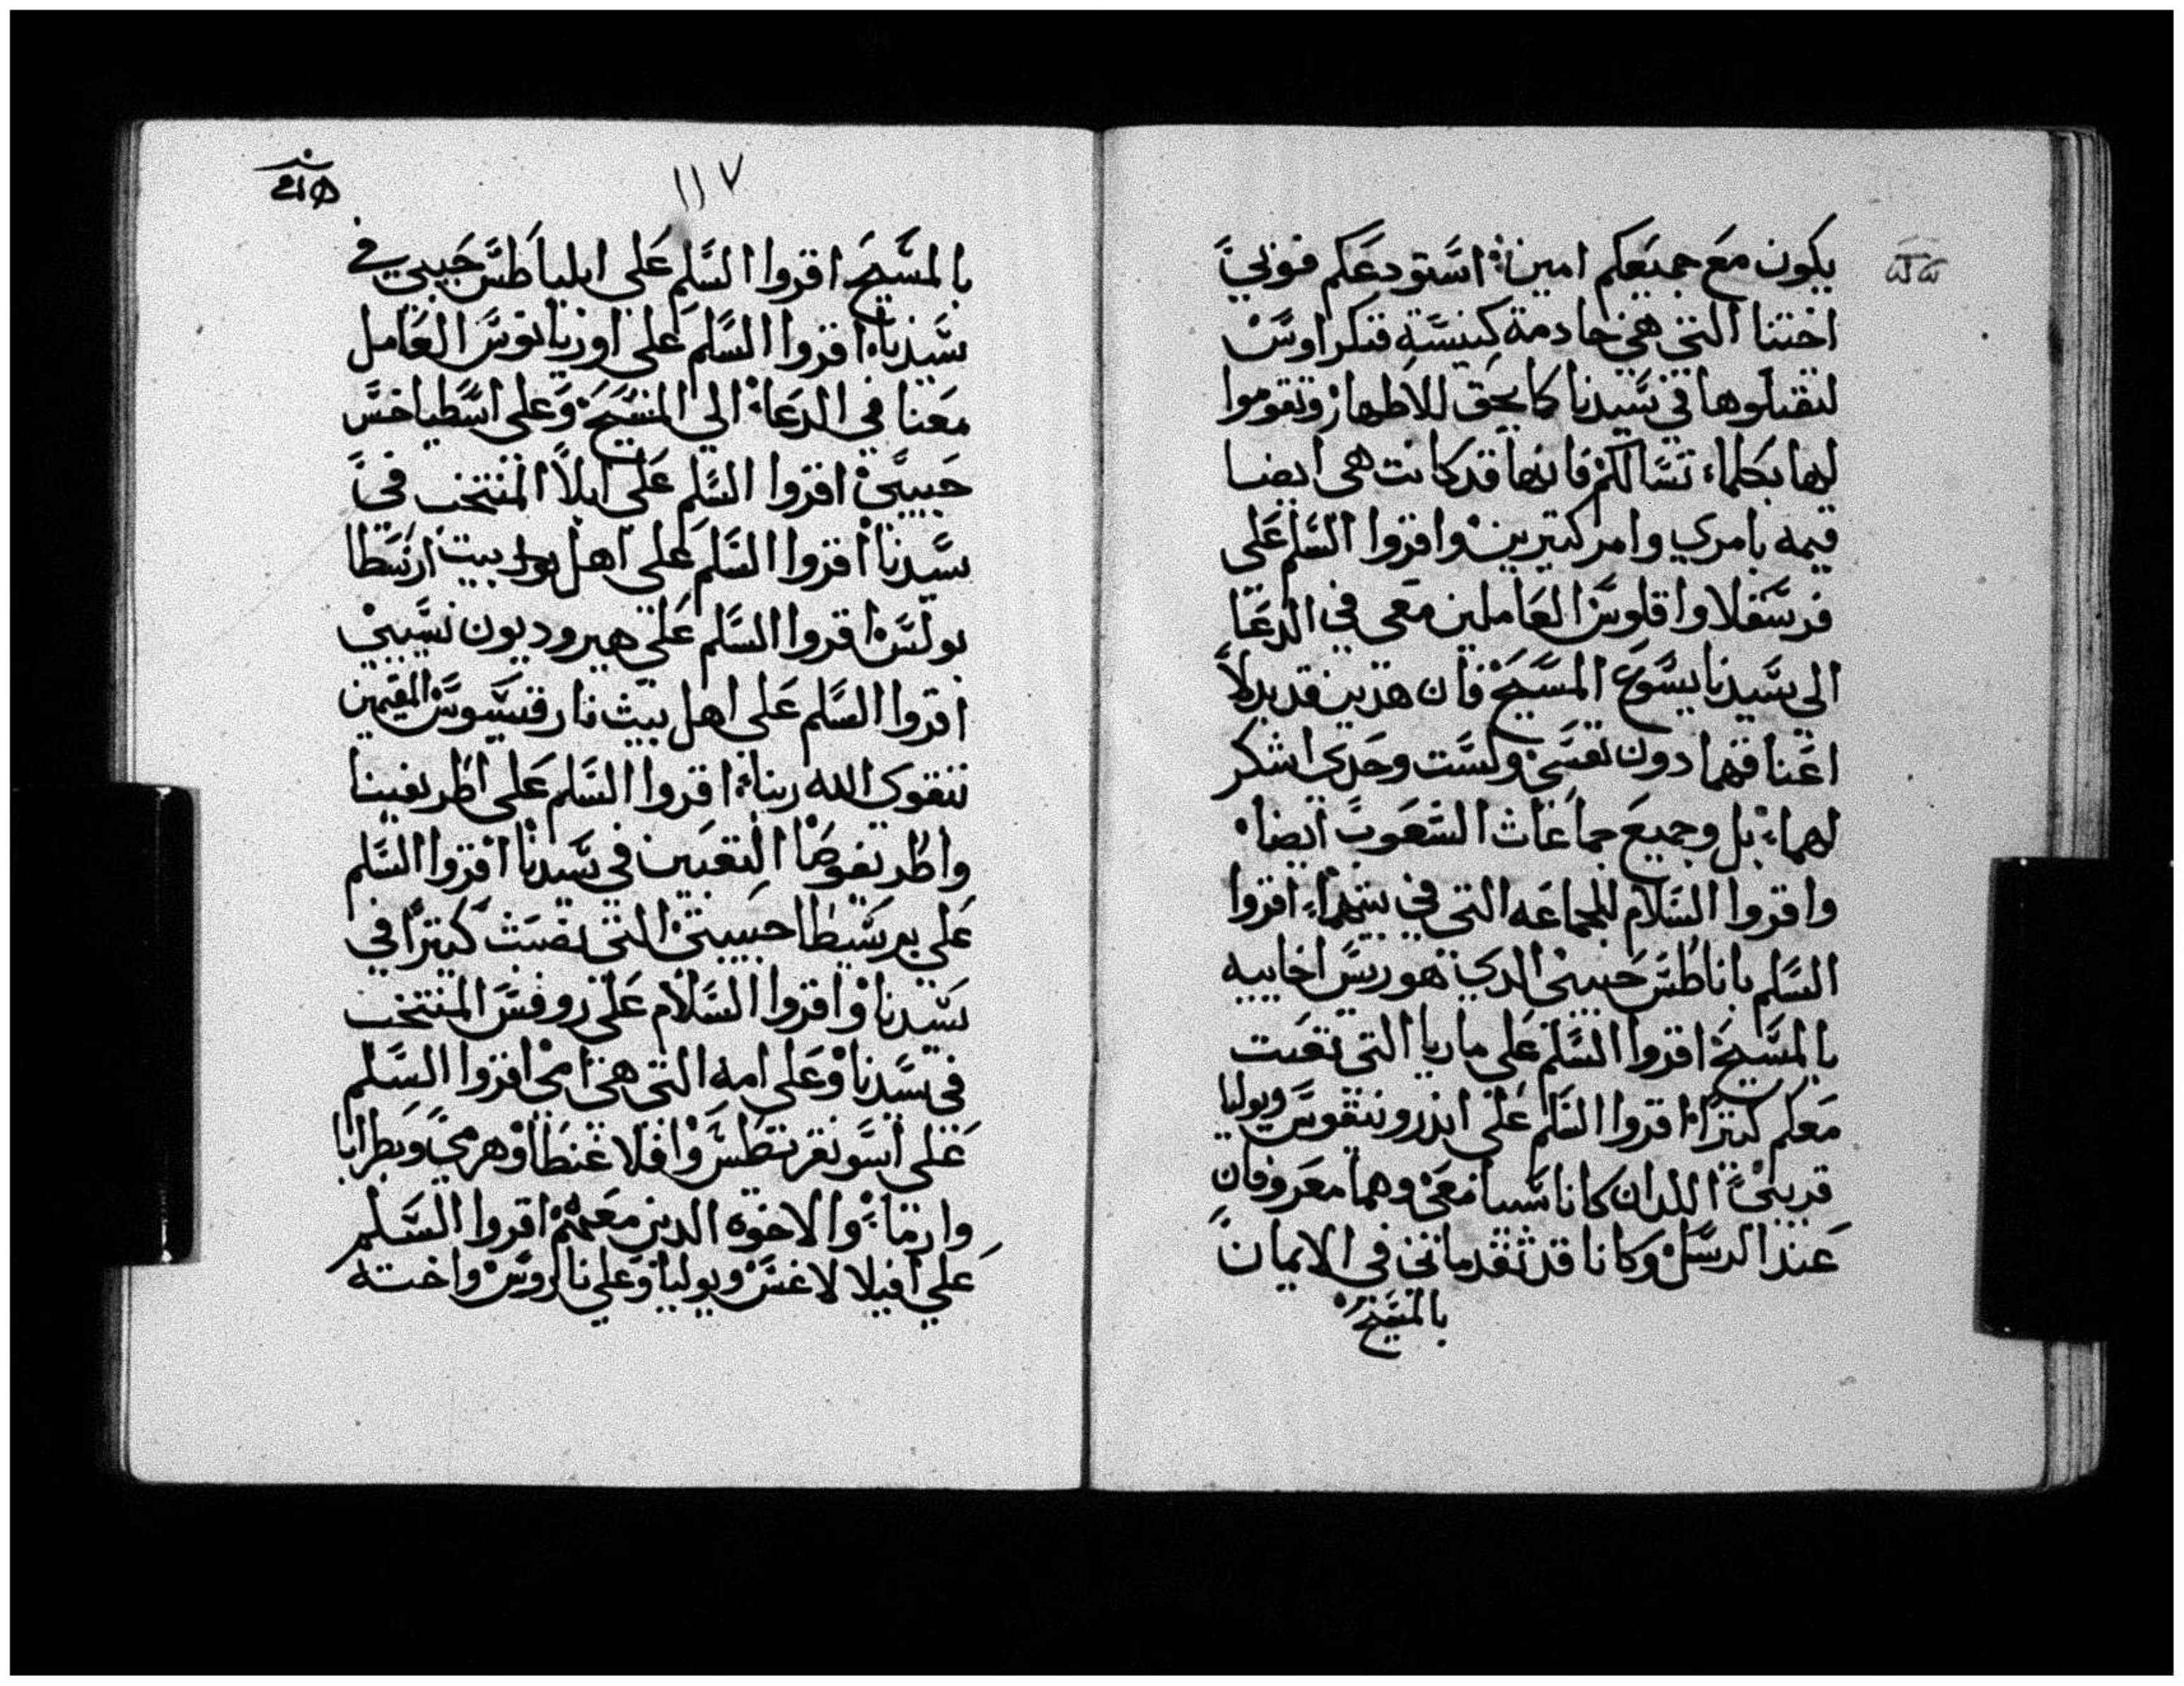 يكون مع جميعكم امين استودعكم فوني
اختنا التي هي خادمة كنيسة قنكراوس
لتقبلوها في سيدنا كما يحق للاطهار وتقوموا
لها بكلما تسالكم فانها قد كانت هي ايضا
قيمه بامري وامر كتيرين واقروا السلم على
فرسقلا واقلوس العاملين معى في الدعا
الي سيدنا يسوع المسيح فان هذين قد بدلا
اعناقهما دون نفسي ولست وحدي اشكر
لهما بل وجميع جماعات الشعوب ايضا
واقروا السلام للجماعه التى في بيتهما اقروا
السلم باناطس حبيبى الدي هو ريس اخاييه
بالمسيح اقروا السلم على ماريا التى تعبت
معكم كتيرا اقروا السلم على اندرونيقوس ويوليا
قريبي اللدان كانا سبيا معي وهما معروفان
عند الرسل وكانا قد تقدماني في الايمان
بالمسيح
١١٧
بالمسيح اقروا السلم على ابلياطس حبيبي في
سيدنا اقروا السلم على اوريانوس العامل
معنا في الدعا الي المسيح وعلى اسطياخس
حبيبي اقروا السلم على ابلا المنتخب في
سيدنا اقروا السلم على اهل بيت ارسطا
بولس اقروا السلم على هيروديون نسيبي
اقروا السلم على اهل بيت نارقيسوس المقيمين
بتقوي الله ربنا اقروا السلم على اطريفينا
واطريفوصا التعبين في سيدنا اقروا السلم
علي برسيطا حبيبتي التي نصبت كتيرا في
سيدنا واقروا السلام على روفس المنتخب
في سيدنا وعلى امه التى هي امى اقروا السلم
على اسونقريتطس وافلاغنطا وهرمي وبطرابا
وارما والاخوه الدين معهم اقروا السلم
علي افيلا لاغس ويوليا وعلي ناروس واخته